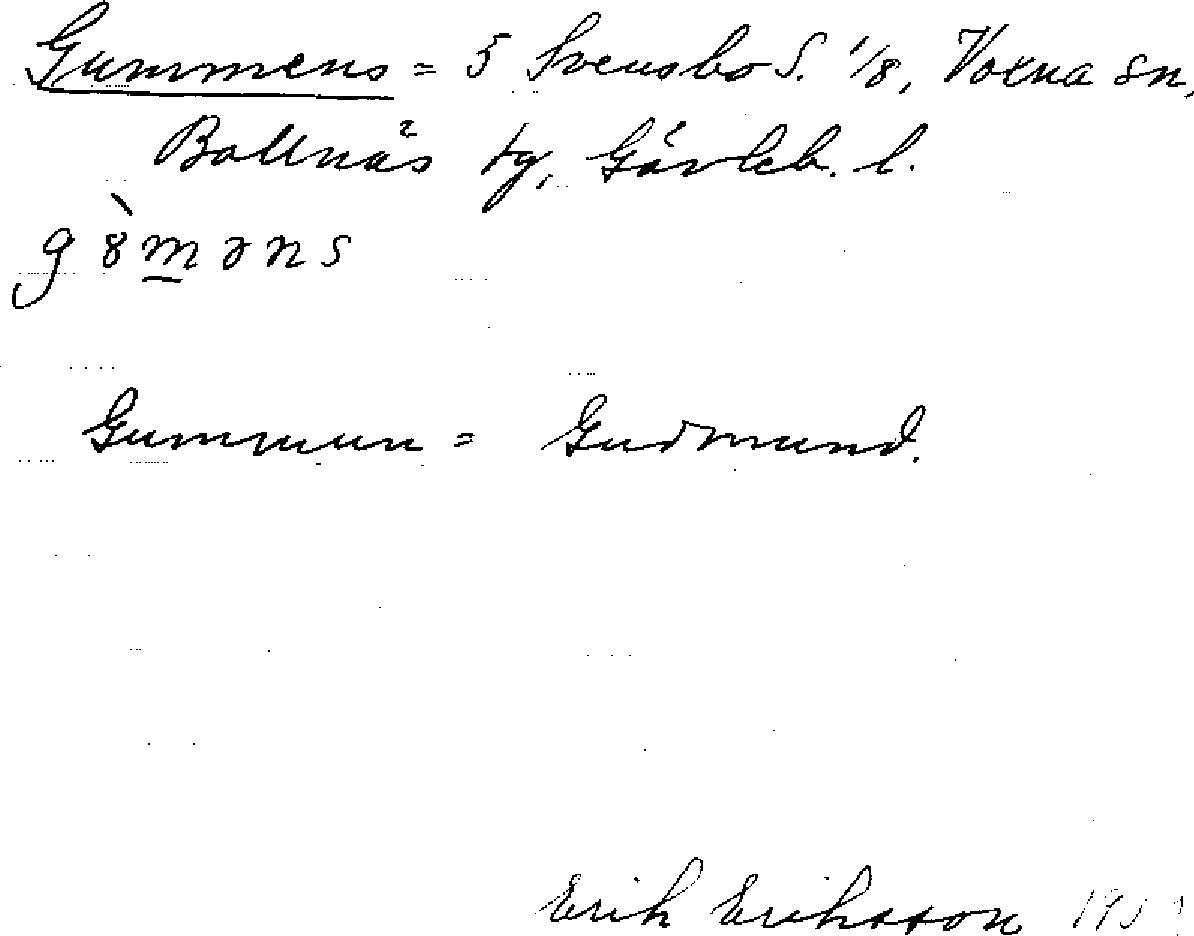 Gummens = 5 Svensbo S. 1/8, Voxna sn,
Bollnäs tg, Gävleb. l.
Gummun = Gudmund.
Erik Eriksson